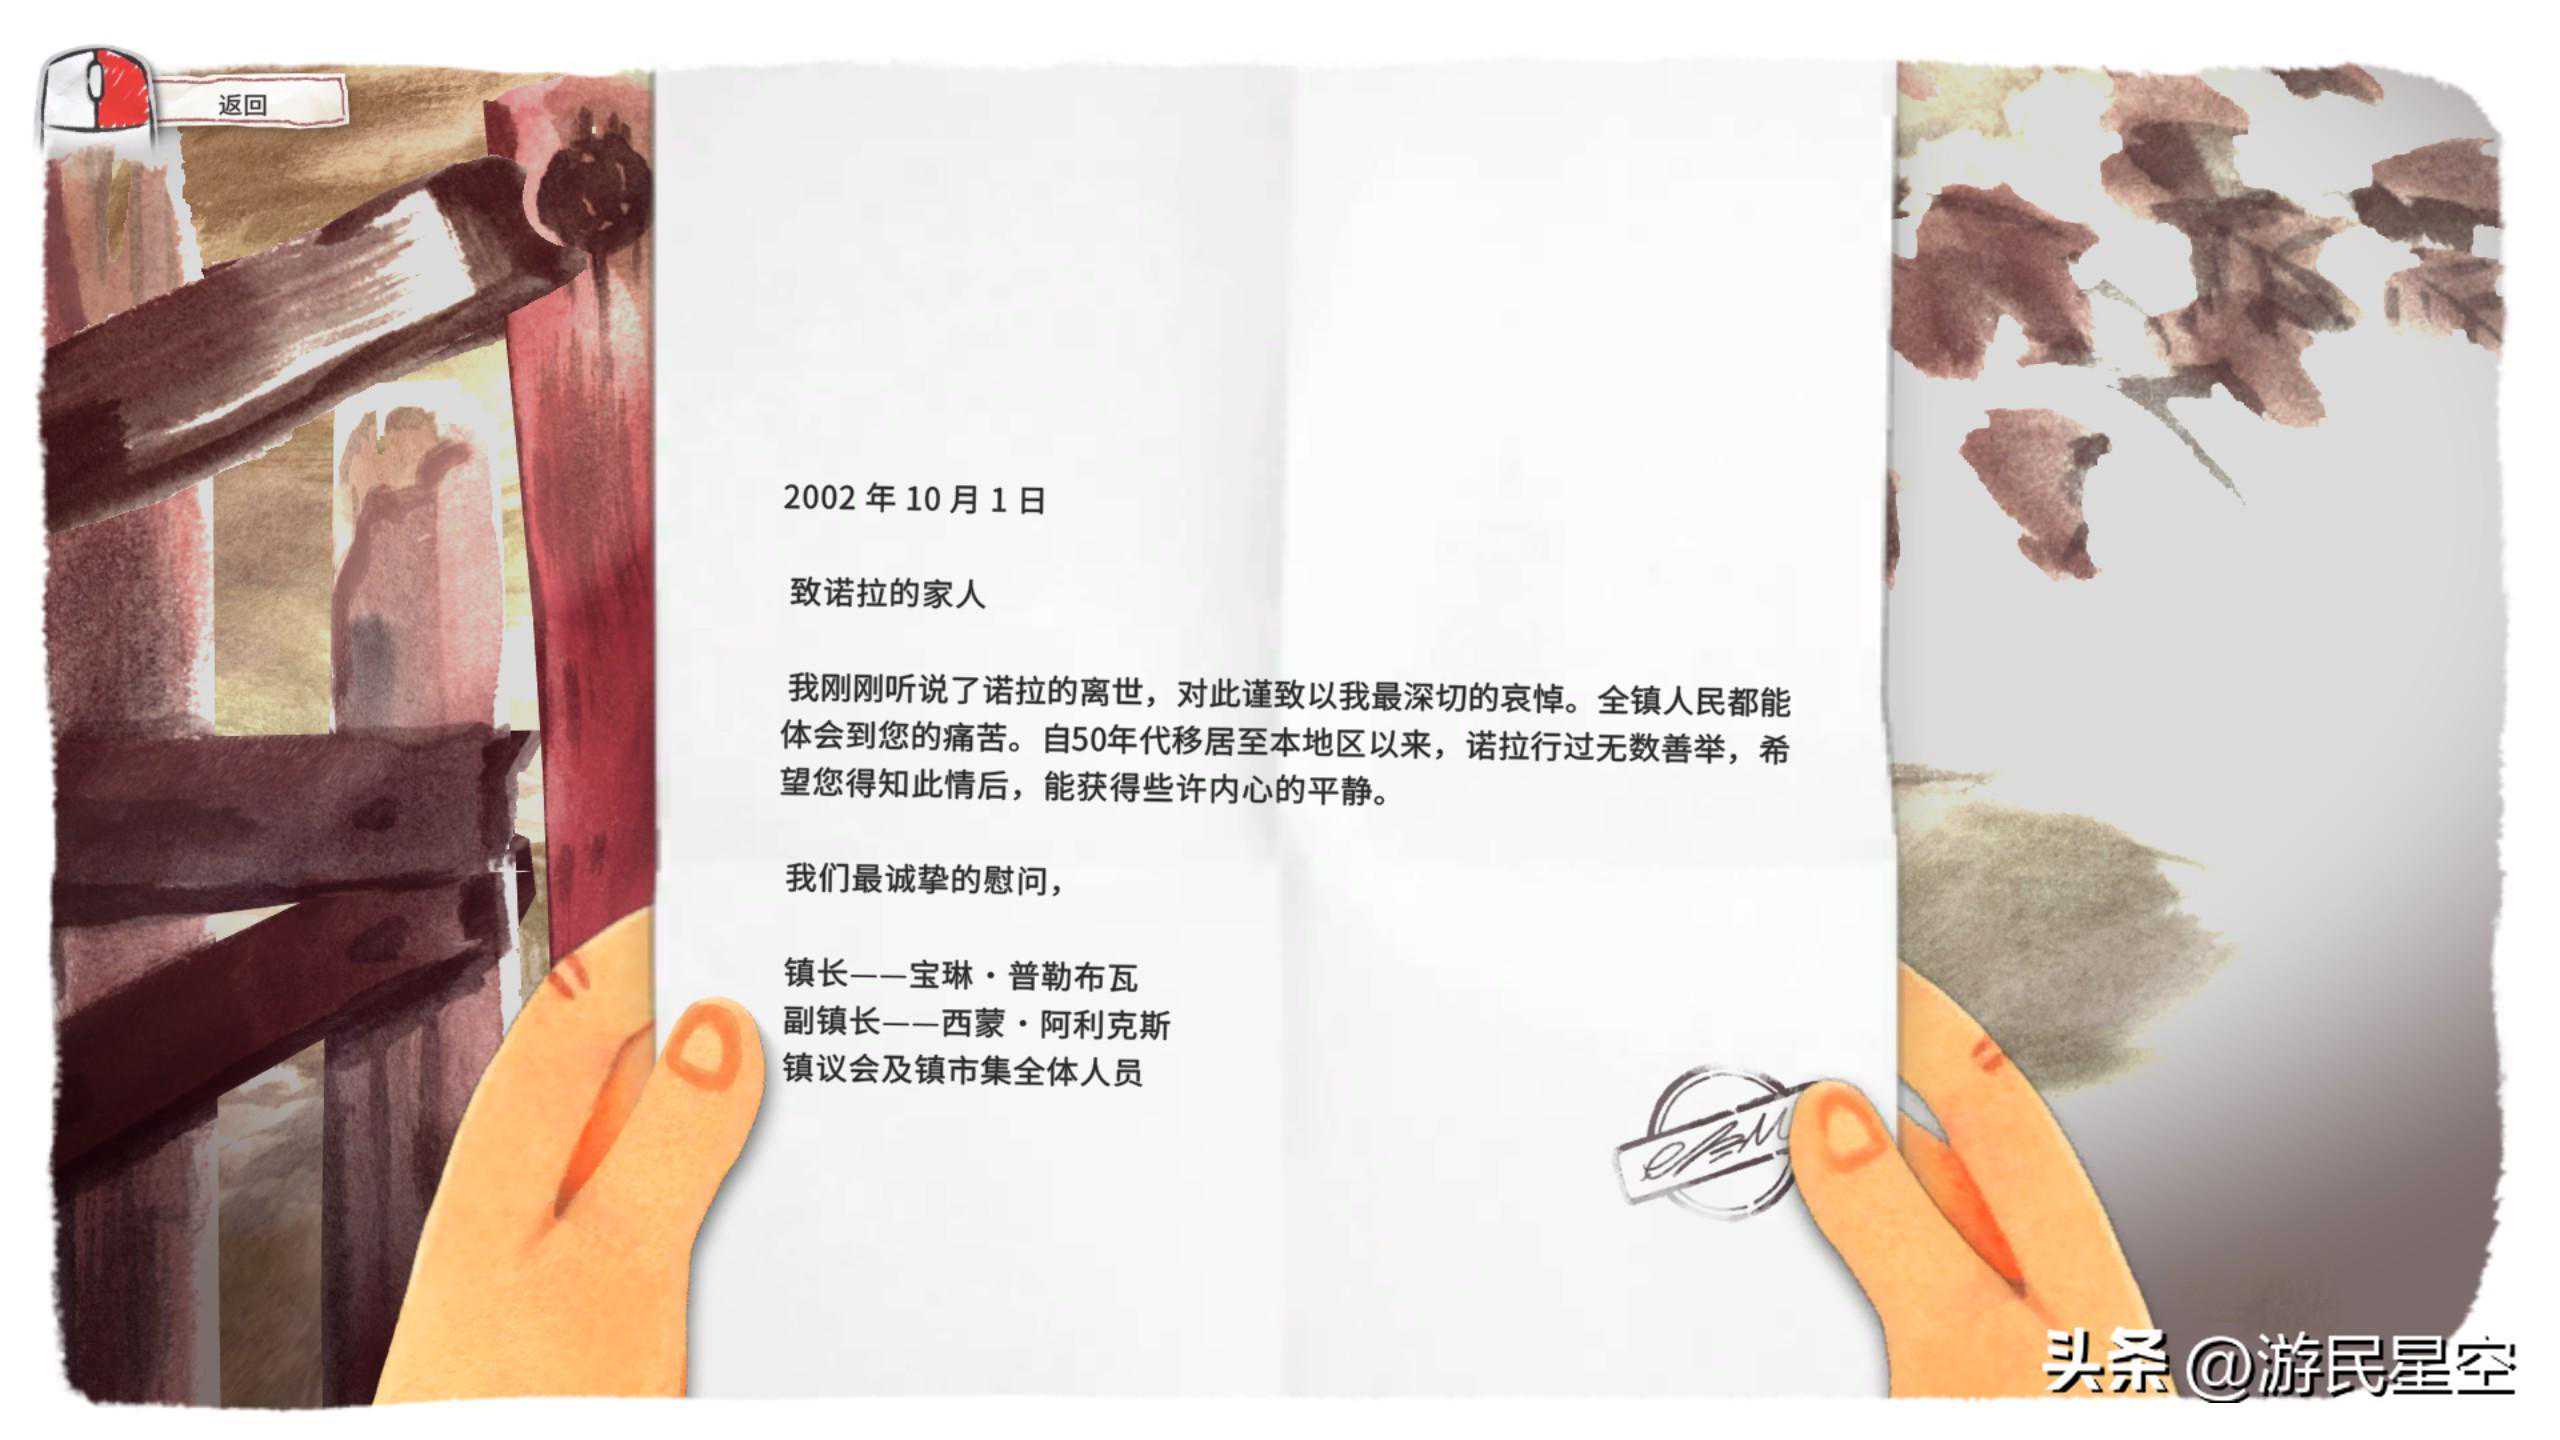 返回
2002 年 10 月 1 日
致诺拉的家人
我刚刚听说了诺拉的离世，对此谨致以我最深切的哀悼。全镇人民都能
体会到您的痛苦。自50年代移居至本地区以来，诺拉行过无数善举，希
望您得知此情后，能获得些许内心的平静。
我们最诚挚的慰问，
镇长——宝琳·普勒布瓦
副镇长——西蒙·阿利克斯
镇议会及镇市集全体人员
头条 @游民星空